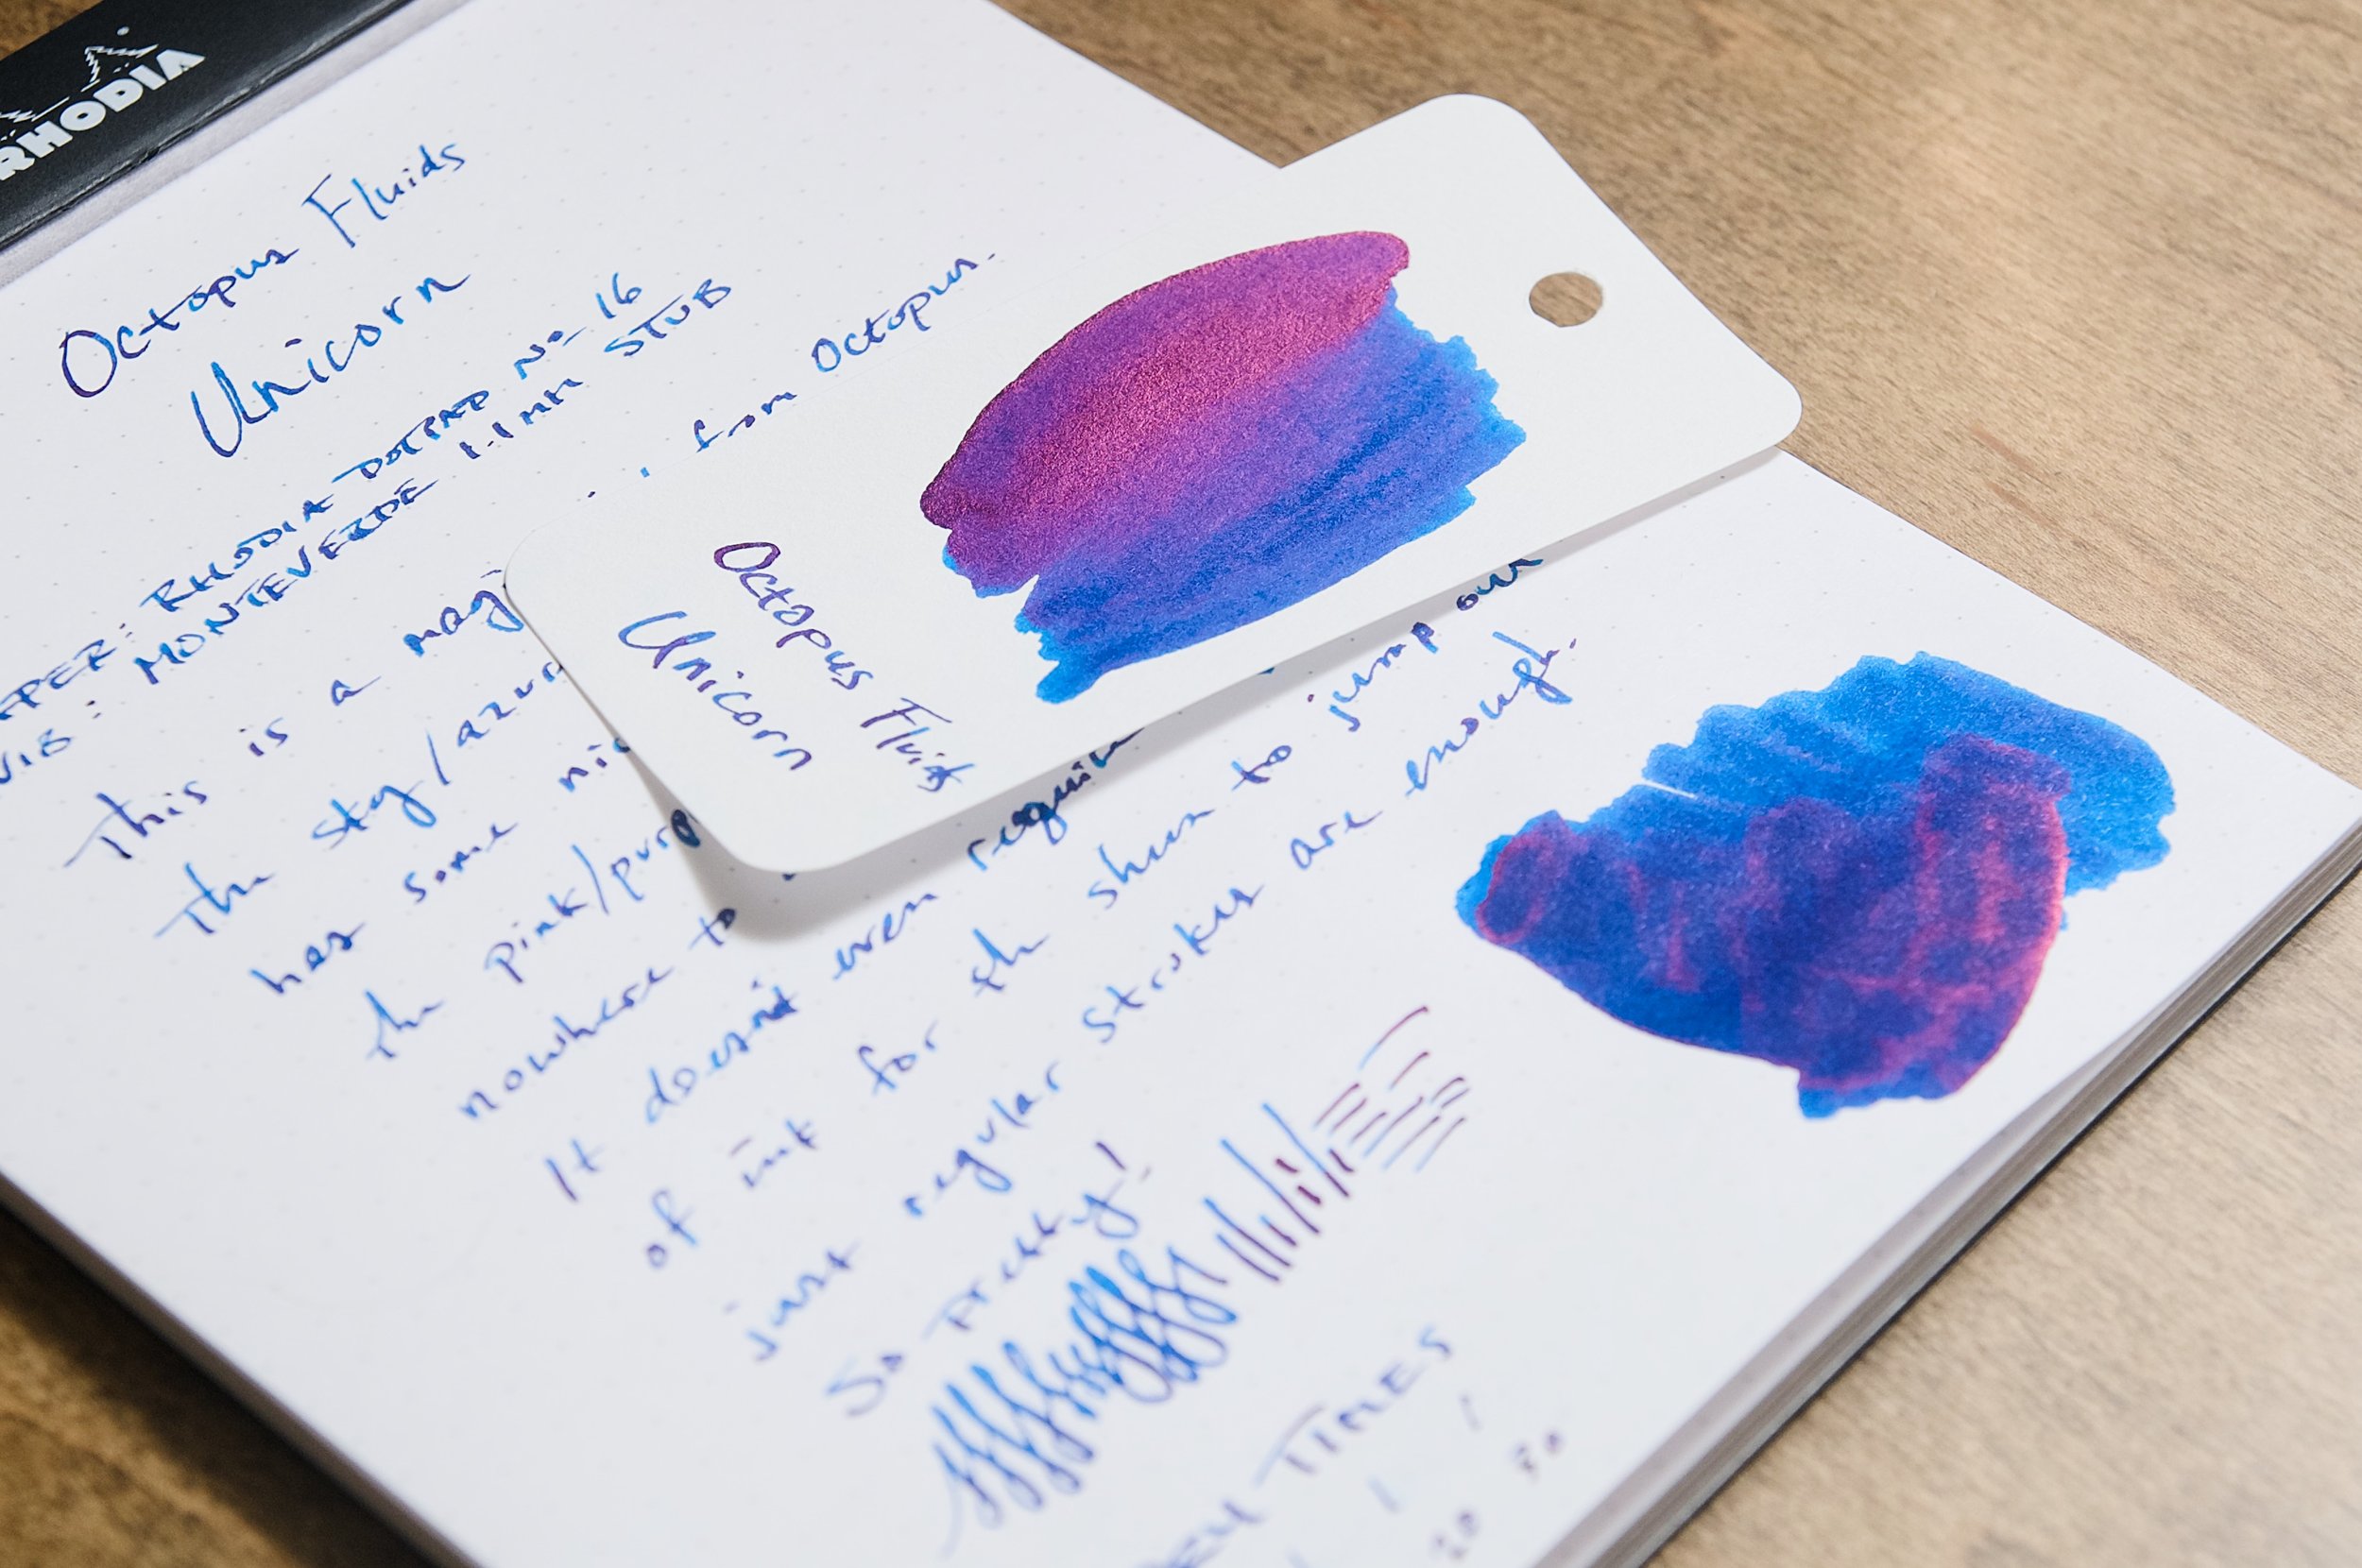 RHODIA
Octopus Fluids
Unicorn
PAPER: RHODIA DOTPAD No 16
NIB: MONTEVERDE 1.1 mm STUB
This is a from Octopus.
The sky/azure
has some
the pink/purp
nowhere to
It doesn't even out
of ink for the sheen to jump
just regular strokes are enough.
So Pretty!
DRY TIMES
20 30
Octopus Fluids
Unicorn